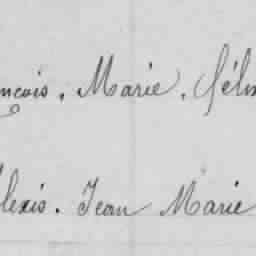 ncois. Marie. Féli
lexis. Jean Marie